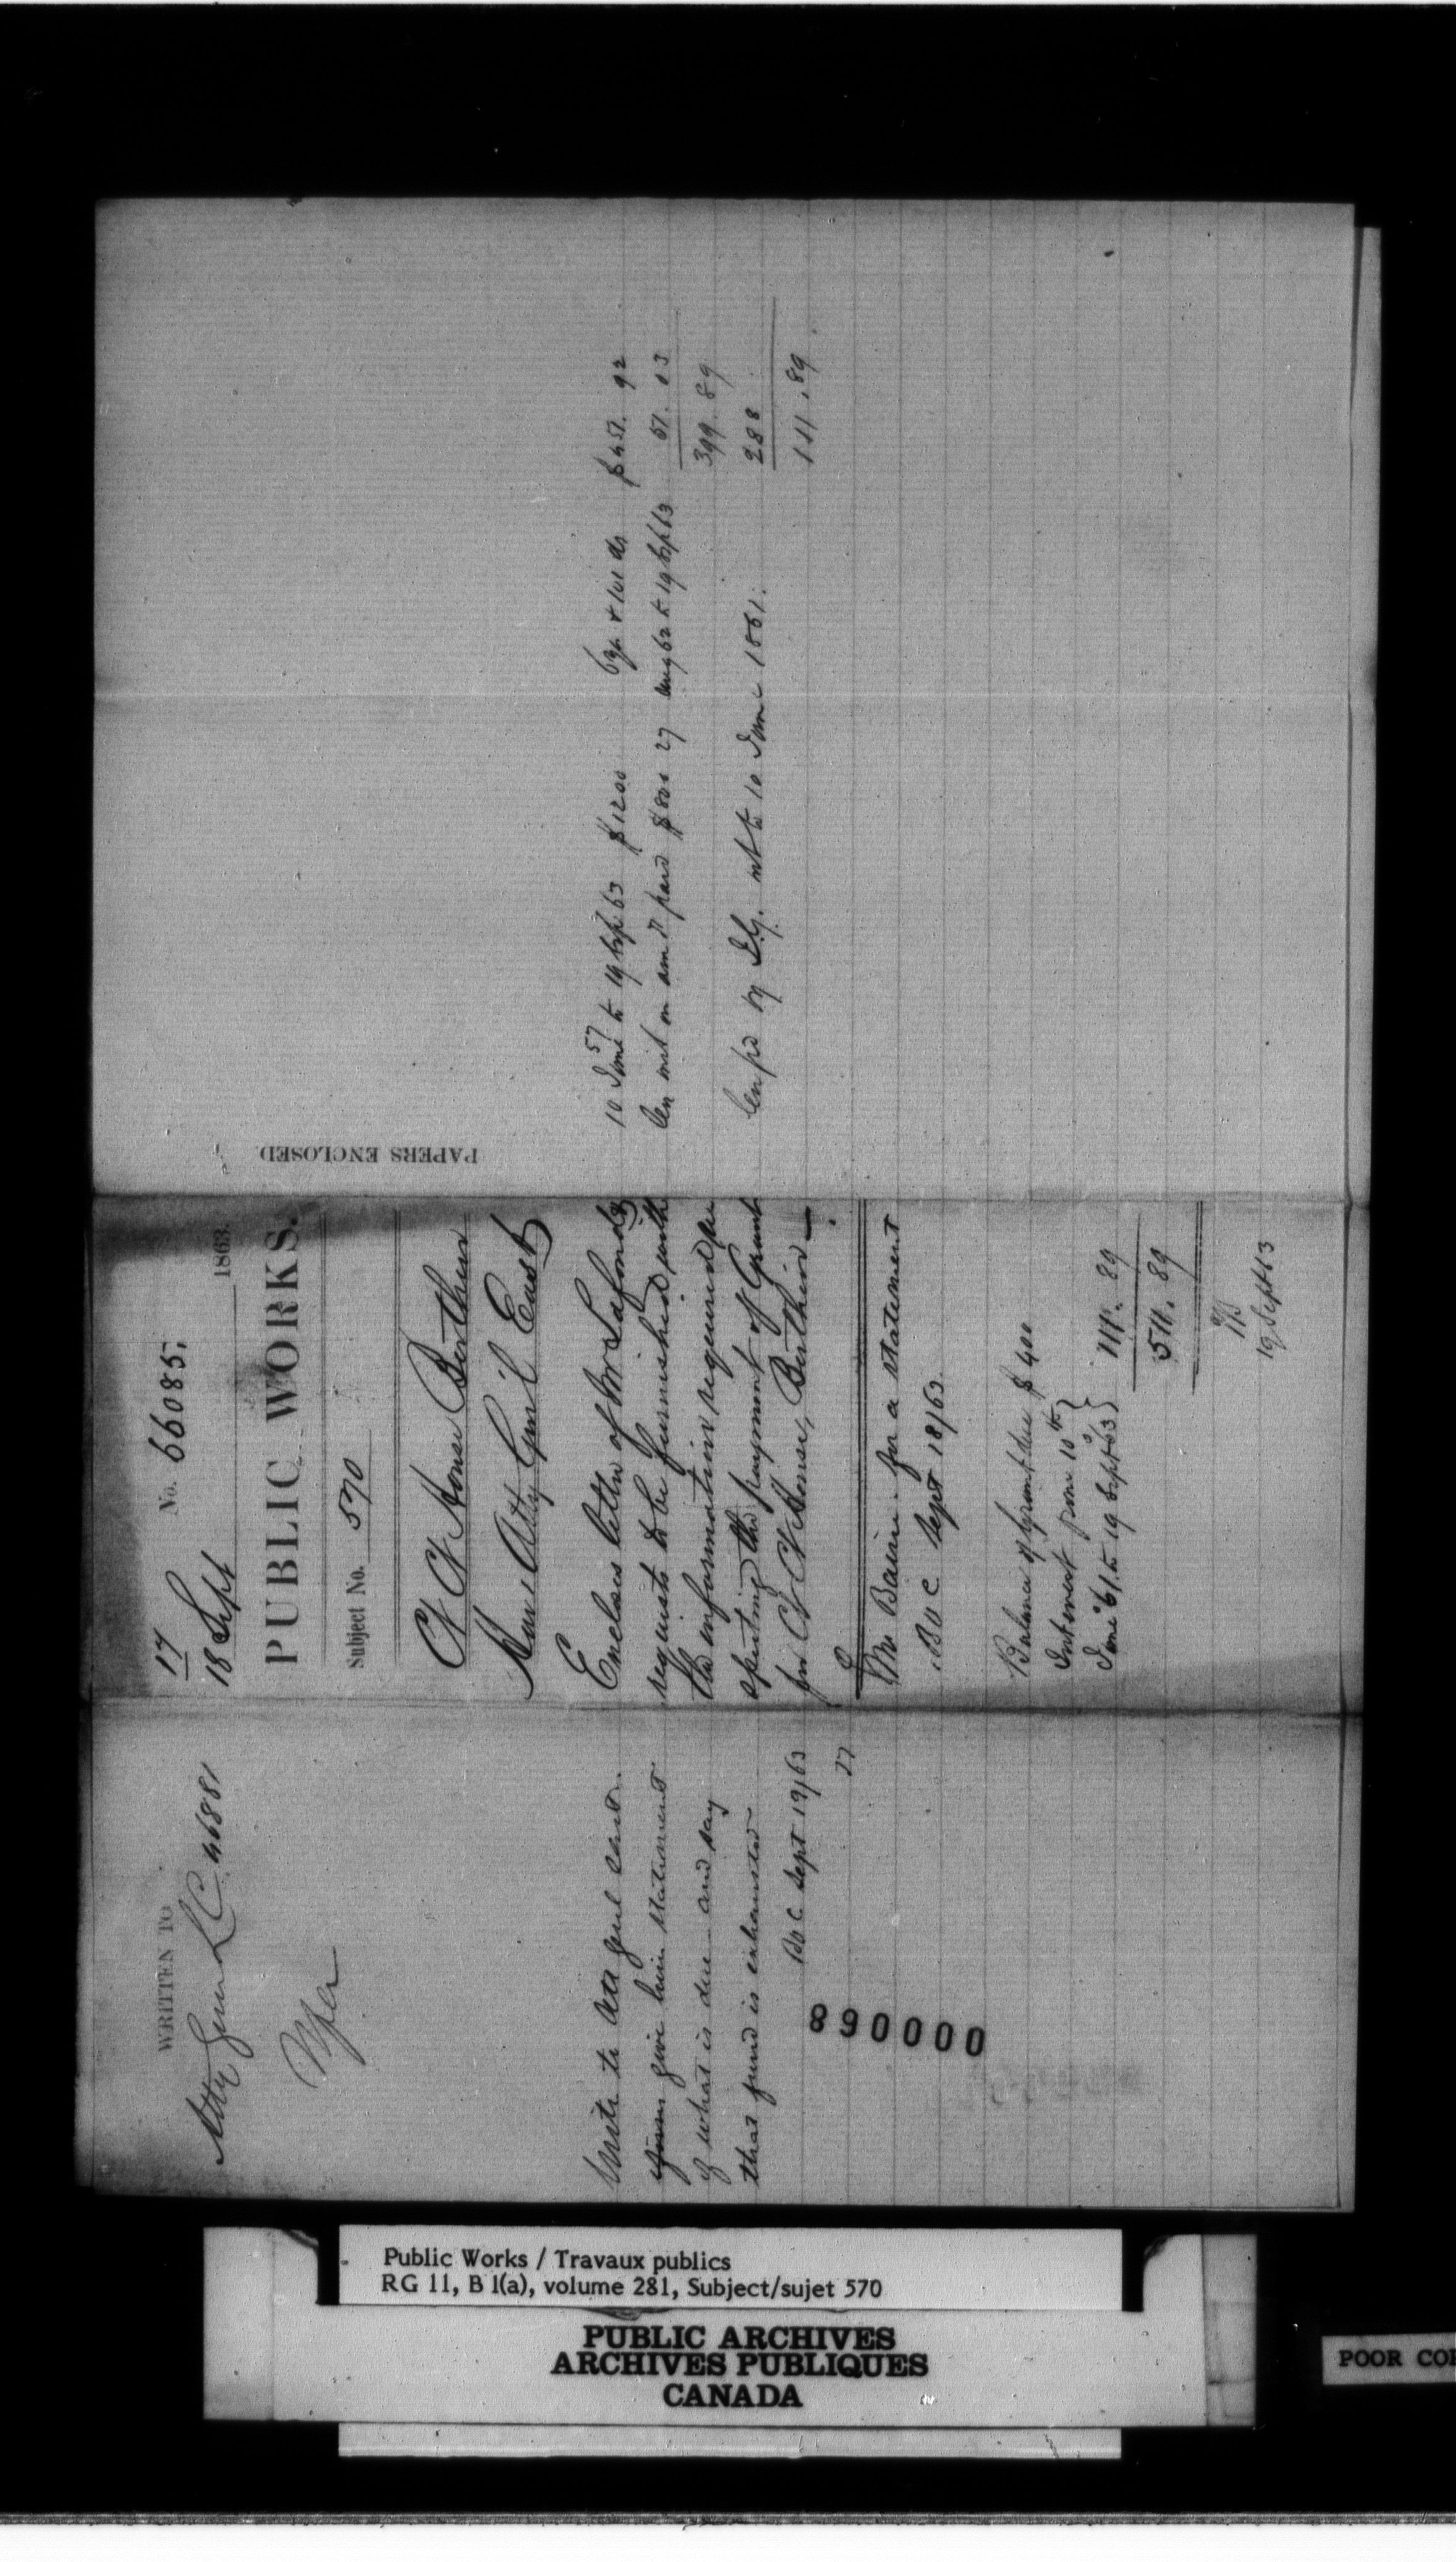 WRITTEN TO
Atty Genl L C 46881
write to Att Genl East.
give him statement
of what is due and say
that fund is exhausted
Sept 19/63
27
000068
17 No. 66085.
18 Sept 1863.
PUBLIC WORKS.
Subject No. 570
Ct House Berthier
Atty Genl East
Encloses letter of Mr Lafond &
requests to be furnished with
the information required re
specting the payment of Grant
for Ct House, Berthier —
Mr Baine for a statement
Sept 18/63.
Balance of Grant due $400
Interest from 10th
June 61. to 19 Sept 63 } 111. 89
511. 89
19 Sept 63
PAPERS ENCLOSED.
10 June 57 to 19 Sep 63 $1200 6 yrs & 101 ds $451. 92
Less int on amt paid $800 27 Aug 62 to 19 Sep 63 51. 03
399. 89
Less pd by int to 10 June 1861. 288
111. 89
Public Works / Travaux publics
RG 11, B 1(a), volume 281, Subject/sujet 570
PUBLIC ARCHIVES
ARCHIVES PUBLIQUES
CANADA
POOR CO